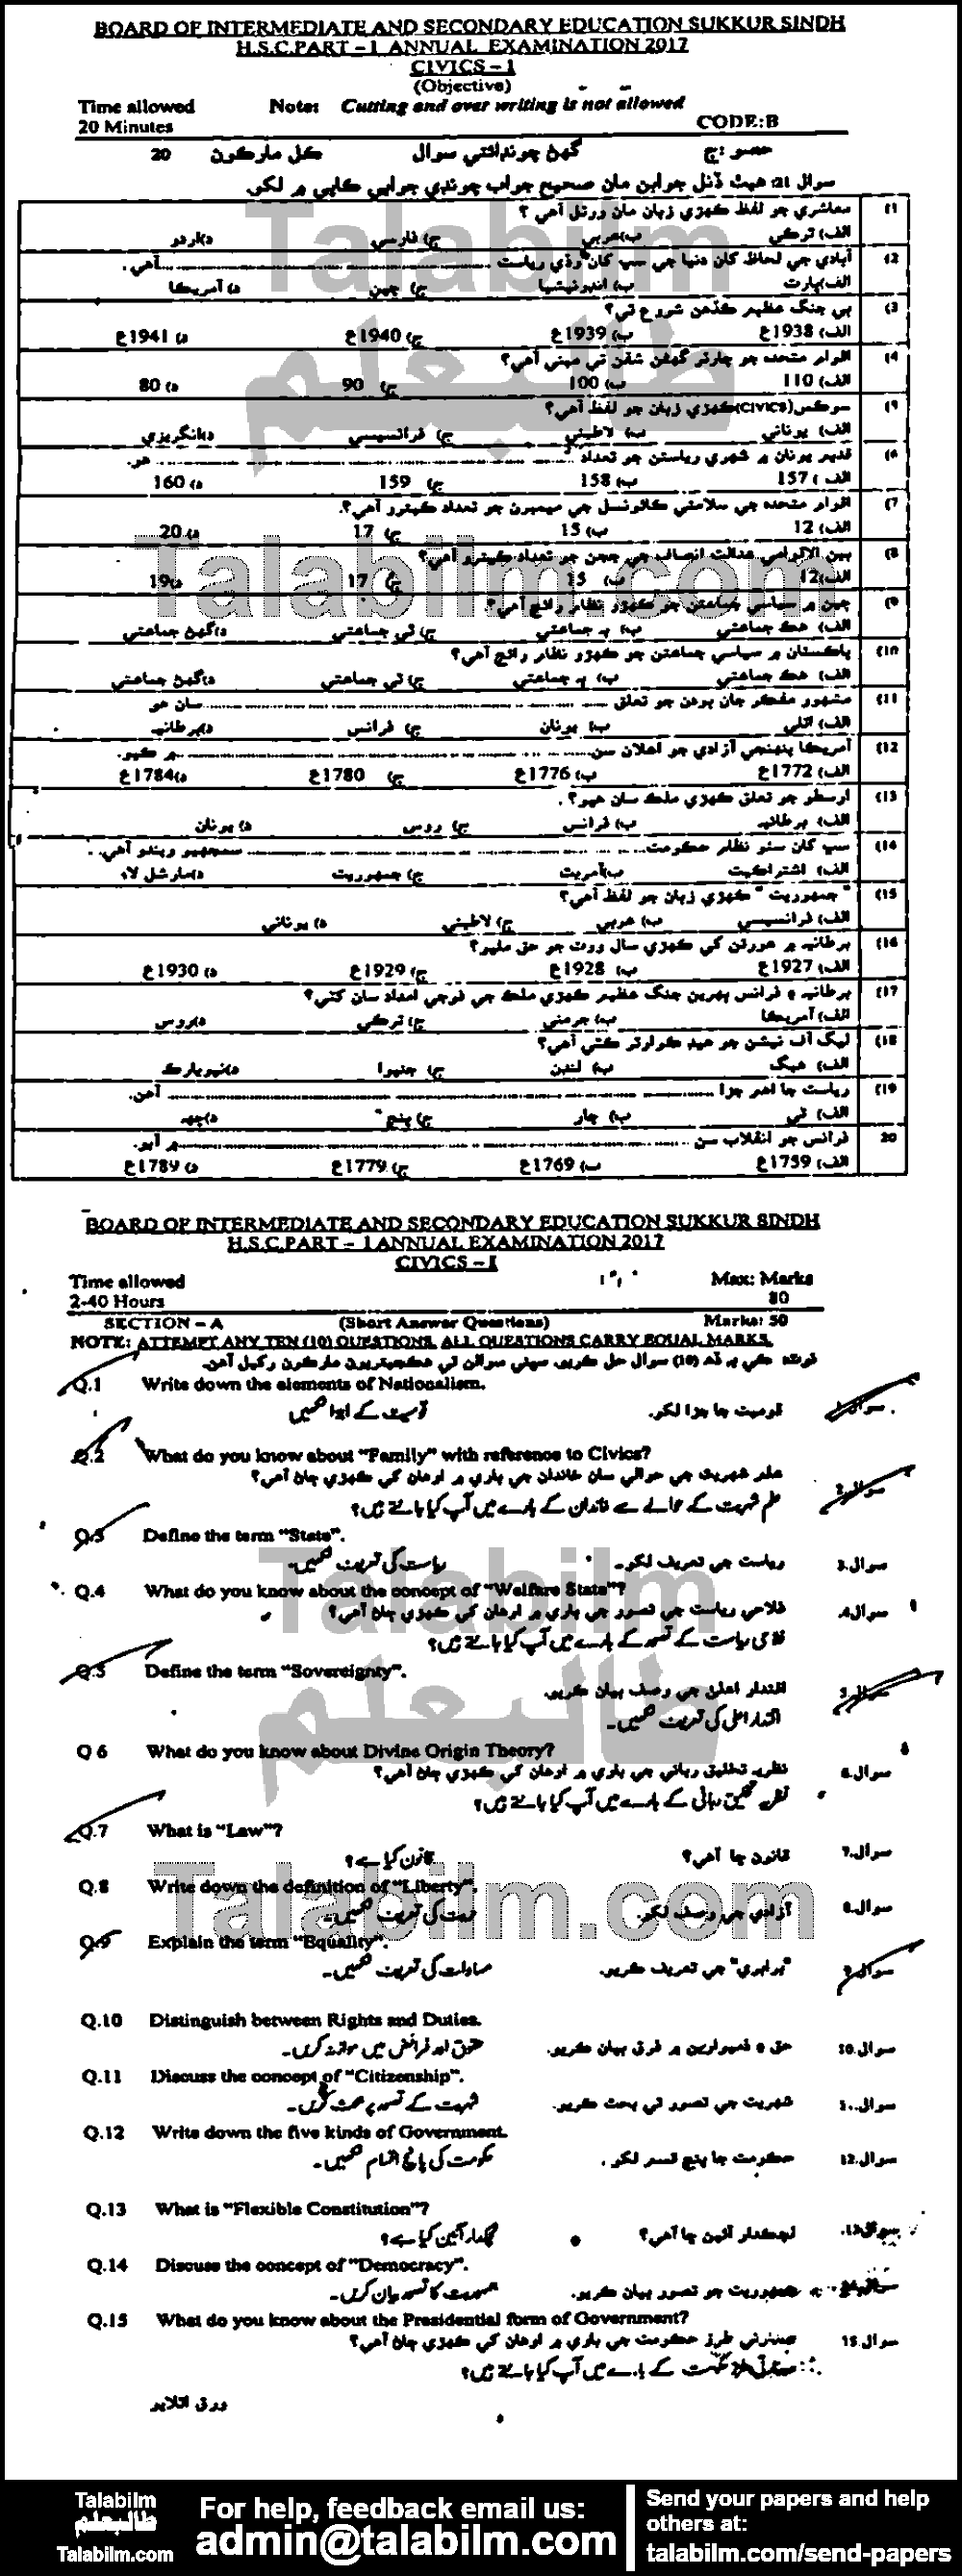 BOARD OF INTERMEDIATE AND SECONDARY EDUCATION SUKKUR SINDH
H.S.C.PART – I ANNUAL EXAMINATION 2017
CIVICS – I
(Objective)
Time allowed Note: Cutting and over writing is not allowed
20 Minutes CODE:B
حصو :ج گهڻ چونڊائتي سوال ڪل مارڪون 20
سوال 21: هيٺ ڏنل جوابن مان صحيح جواب چونڊي جوابي ڪاپي ۾ لکو.
(1 معاشري جو لفظ ڪهڙي زبان مان ورتل آهي ؟
الف) ترڪي ب)عربي ج) فارسي د)اردو
(2 آبادي جي لحاظ کان دنيا جي سڀ کان وڏي رياست ........ آهي .
الف)ڀارت ب) انڊونيشيا ج) چين د) آمريڪا
(3 ٻي جنگ عظيم ڪڏهن شروع ٿي؟
الف) 1938ع ب) 1939ع ج) 1940ع د) 1941ع
(4 اقوام متحده جو چارٽر گهڻن شقن تي مبني آهي؟
الف) 110 ب) 100 ج) 90 د) 80
(5 سوڪس(CIVICS)ڪهڙي زبان جو لفظ آهي؟
الف) يوناني ب) لاطيني ج) فرانسيسي د)انگريزي
(6 قديم يونان ۾ شهري رياستن جو تعداد ........ هو.
الف) 157 ب) 158 ج) 159 د) 160
(7 اقوام متحده جي سلامتي ڪائونسل جي ميمبرن جو تعداد ڪيترو آهي؟.
الف) 12 ب) 15 ج) 17 د) 20
(8 بين الاقوامي عدالت انصاف جي ججن جو تعداد ڪيترو آهي؟
الف)12 ب) 15 ج) 17 د)19
(9 چين ۾ سياسي جماعتن جو ڪهڙو نظام رائج آهي؟
الف) هڪ جماعتي ب) ٻه جماعتي ج) ٽي جماعتي د)گهڻ جماعتي
(10 پاڪستان ۾ سياسي جماعتن جو ڪهڙو نظام رائج آهي؟
الف) هڪ جماعتي ب) ٻه جماعتي ج) ٽي جماعتي د)گهڻ جماعتي
(11 مشهور مفڪر جان بودن جو تعلق ........ سان هو
الف) اٽلي ب) يونان ج) فرانس د)برطانيه
(12 آمريڪا پنهنجي آزادي جو اعلان سن ........ ۾ ڪيو.
الف) 1772ع ب) 1776ع ج) 1780ع د)1784ع
(13 ارسطو جو تعلق ڪهڙي ملڪ سان هيو؟ .
الف) برطانيه ب) فرانس ج) روس د) يونان
(14 سڀ کان سٺو نظام حڪومت ........ سمجهيو ويندو آهي.
الف) اشتراڪيت ب)آمريت ج) جمهوريت د)مارشل لاء
(15 "جمهوريت" ڪهڙي زبان جو لفظ آهي؟
الف) فرانسيسي ب) عربي ج) لاطيني د) يوناني
(16 برطانيه ۾ عورتن کي ڪهڙي سال ووٽ جو حق مليو؟
الف) 1927ع ب) 1928ع ج) 1929ع د) 1930ع
(17 برطانيه ۽ فرانس پهرين جنگ عظيم ڪهڙي ملڪ جي فوجي امداد سان کٽي؟
الف) آمريڪا ب) جرمني ج) ترڪي د)روس
(18 ليگ آف نيشن جو هيڊ ڪوارٽر ڪٿي آهي؟
الف) هيگ ب) لنڊن ج) جنيوا د)نيويارڪ
(19 رياست جا اهم جزا ........ آهن.
الف) ٽي ب) چار ج) پنج د)ڇهه
20 فرانس جو انقلاب سن ........ ۾ آيو.
الف) 1759ع ب) 1769ع ج) 1779ع د) 1789ع
BOARD OF INTERMEDIATE AND SECONDARY EDUCATION SUKKUR SINDH
H.S.C.PART – I ANNUAL EXAMINATION 2017
CIVICS – I
Time allowed Max: Marks
2-40 Hours 80
SECTION – A (Short Answer Questions) Marks: 50
NOTE: ATTEMPT ANY TEN (10) QUESTIONS. ALL QUESTIONS CARRY EQUAL MARKS.
نوٽ: ڪي به ڏهه (10) سوال حل ڪريو. سڀني سوالن تي هڪجيتريون مارڪون رکيل آهن.
Q.1 Write down the elements of Nationalism.
سوال.1 قوميت جا جزا لکو. قومیت کے اجزا لکھیں
Q.2 What do you know about "Family" with reference to Civics?
سوال.2 علم شهريت جي حوالي سان خاندان جي باري ۾ اوهان کي ڪهڙي ڄاڻ آهي؟
علم شہریت کے حوالے سے خاندان کے بارے میں آپ کیا جانتے ہیں؟
Q.3 Define the term "State".
سوال.3 رياست جي تعريف لکو. ریاست کی تعریف لکھیں۔
Q.4 What do you know about the concept of "Welfare State"?
سوال.4 فلاحي رياست جي تصور جي باري ۾ اوهان کي ڪهڙي ڄاڻ آهي؟
فلاحی ریاست کے تصور کے بارے میں آپ کیا جانتے ہیں؟
Q.5 Define the term "Sovereignty".
سوال.5 اقتدار اعليٰ جي وصف بيان ڪريو.
اقتدار اعلیٰ کی تعریف لکھیں۔
Q 6 What do you know about Divine Origin Theory?
سوال.6 نظريه تخليق رباني جي باري ۾ اوهان کي ڪهڙي ڄاڻ آهي؟
نظریہ تخلیق ربانی کے بارے میں آپ کیا جانتے ہیں؟
Q.7 What is "Law"?
سوال.7 قانون ڇا آهي؟ قانون کیا ہے؟
Q.8 Write down the definition of "Liberty".
سوال.8 آزادي جي وصف لکو. حریت کی تعریف لکھیں۔
Q.9 Explain the term "Equality".
سوال.9 "برابري" جي تعريف ڪريو. مساوات کی تعریف لکھیں۔
Q.10 Distinguish between Rights and Duties.
سوال.10 حق ۽ ذميوارين ۾ فرق بيان ڪريو. حقوق اور فرائض میں موازنہ کریں۔
Q.11 Discuss the concept of "Citizenship".
سوال.11 شهريت جي تصور تي بحث ڪريو. شہریت کے تصور پر بحث کریں۔
Q.12 Write down the five kinds of Government.
سوال.12 حڪومت جا پنج قسم لکو . حکومت کی پانچ اقسام لکھیں۔
Q.13 What is "Flexible Constitution"?
سوال.13 لچڪدار آئين ڇا آهي؟ لچکدار آئین کیا ہے؟
Q.14 Discuss the concept of "Democracy".
سوال.14 جمهوريت جو تصور بيان ڪريو. جمہوریت کا تصور بیان کریں۔
Q.15 What do you know about the Presidential form of Government?
سوال.15 صدارتي طرز حڪومت جي باري ۾ اوهان کي ڪهڙي ڄاڻ آهي؟
صدارتی طرز حکومت کے بارے میں آپ کیا جانتے ہیں؟
ورق اٿلايو
Talabilm
طالبعلم
Talabilm.com
For help, feedback email us:
admin@talabilm.com
Send your papers and help
others at:
talabilm.com/send-papers